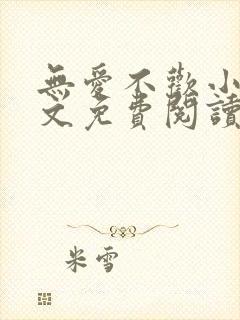 無愛不歡小
文免費閱讀
米雪